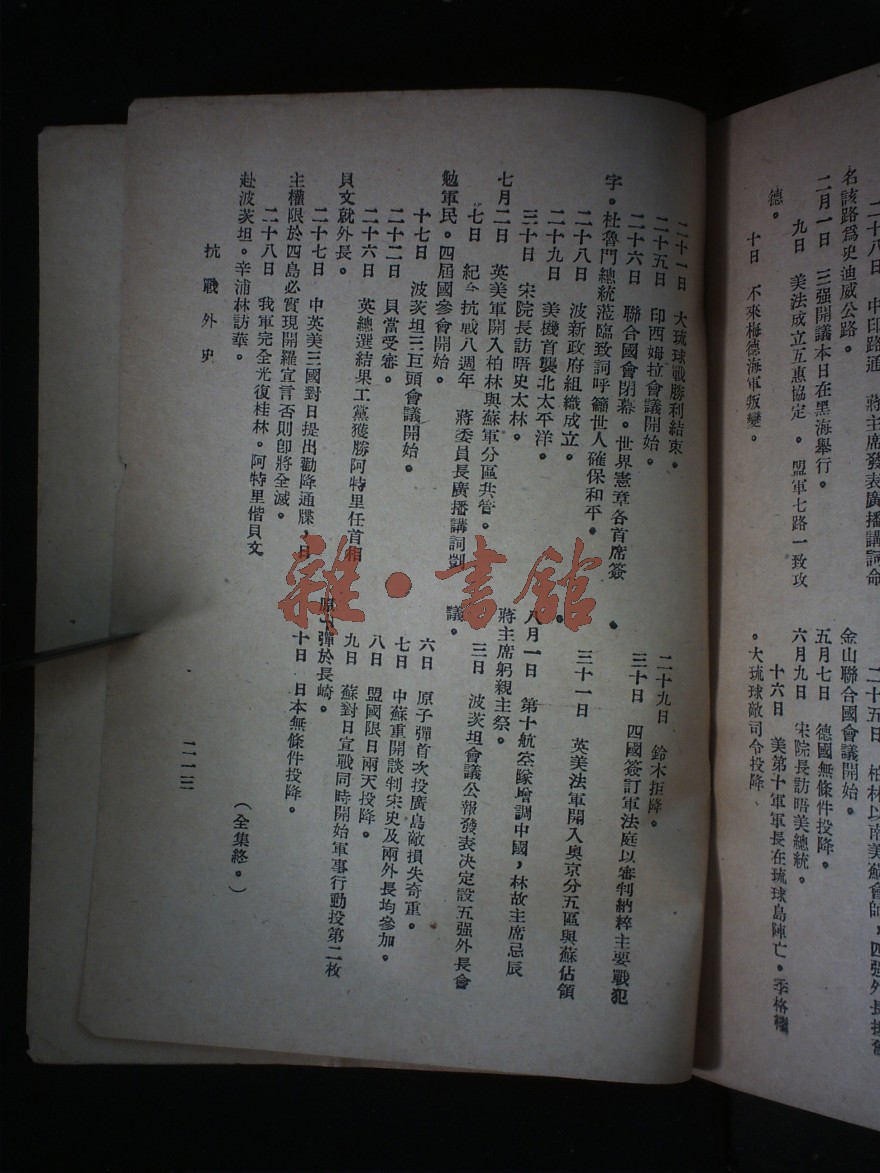 二十八日　中印路通　蔣主席發表廣播講詞命
名該路爲史迪威公路。
二月一日　三强開議本日在黑海舉行。
九日　美法成立互惠協定。盟軍七路一致攻
德。
十日　不來梅德海軍叛變。
二十五日　柏林以南美蘇會師，四强外長
金山聯合國會議開始。
五月七日　德國無條件投降。
六月九日　宋院長訪晤美總統。
十六日　美第十軍軍長在琉球島陣亡。季格繼
。大琉球敵司令投降
二十一日　大琉球戰勝利結束。
二十五日　印西姆拉會議開始。
二十六日　聯合國會閉幕。世界憲章各首席簽
字。杜魯門總統蒞臨致詞呼籲世人確保和平。
二十八日　波新政府組織成立。
二十九日　美機首襲北太平洋。
三十日　宋院長訪晤史太林。
七月二日　英美軍開入柏林與蘇軍分區共管。
七日　紀念抗戰八週年　蔣委員長廣播講詞剴
勉軍民。四屆國參會開始。
十七日　波茨坦三巨頭會議開始。
二十二日　貝當受審。
二十六日　英總選結果工黨獲勝阿特里任首相
貝文就外長。
二十七日　中英美三國對日提出勸降通牒，日
主權限於四島必實現開羅宣言否則卽將全滅。
二十八日　我軍完全光復桂林。阿特里偕貝文
赴波茨坦。辛浦林訪華。
二十九日　鈴木拒降。
三十日　四國簽訂軍法庭以審判納粹主要戰犯
。
三十一日　英美法軍開入奧京分五區與蘇佔領
八月一日　第十航空隊增調中國，林故主席忌辰
蔣主席躬親主祭。
三日　波茨坦會議公報發表决定設五强外長會
議。
六日　原子彈首次投廣島敵損失奇重。
七日　中蘇重開談判宋史及兩外長均參加。
八日　盟國限日兩天投降。
九日　蘇對日宣戰同時開始軍事行動投第二枚
原子彈於長崎。
十日　日本無條件投降。
（全集終。）
抗戰外史
二一三
雜·書館